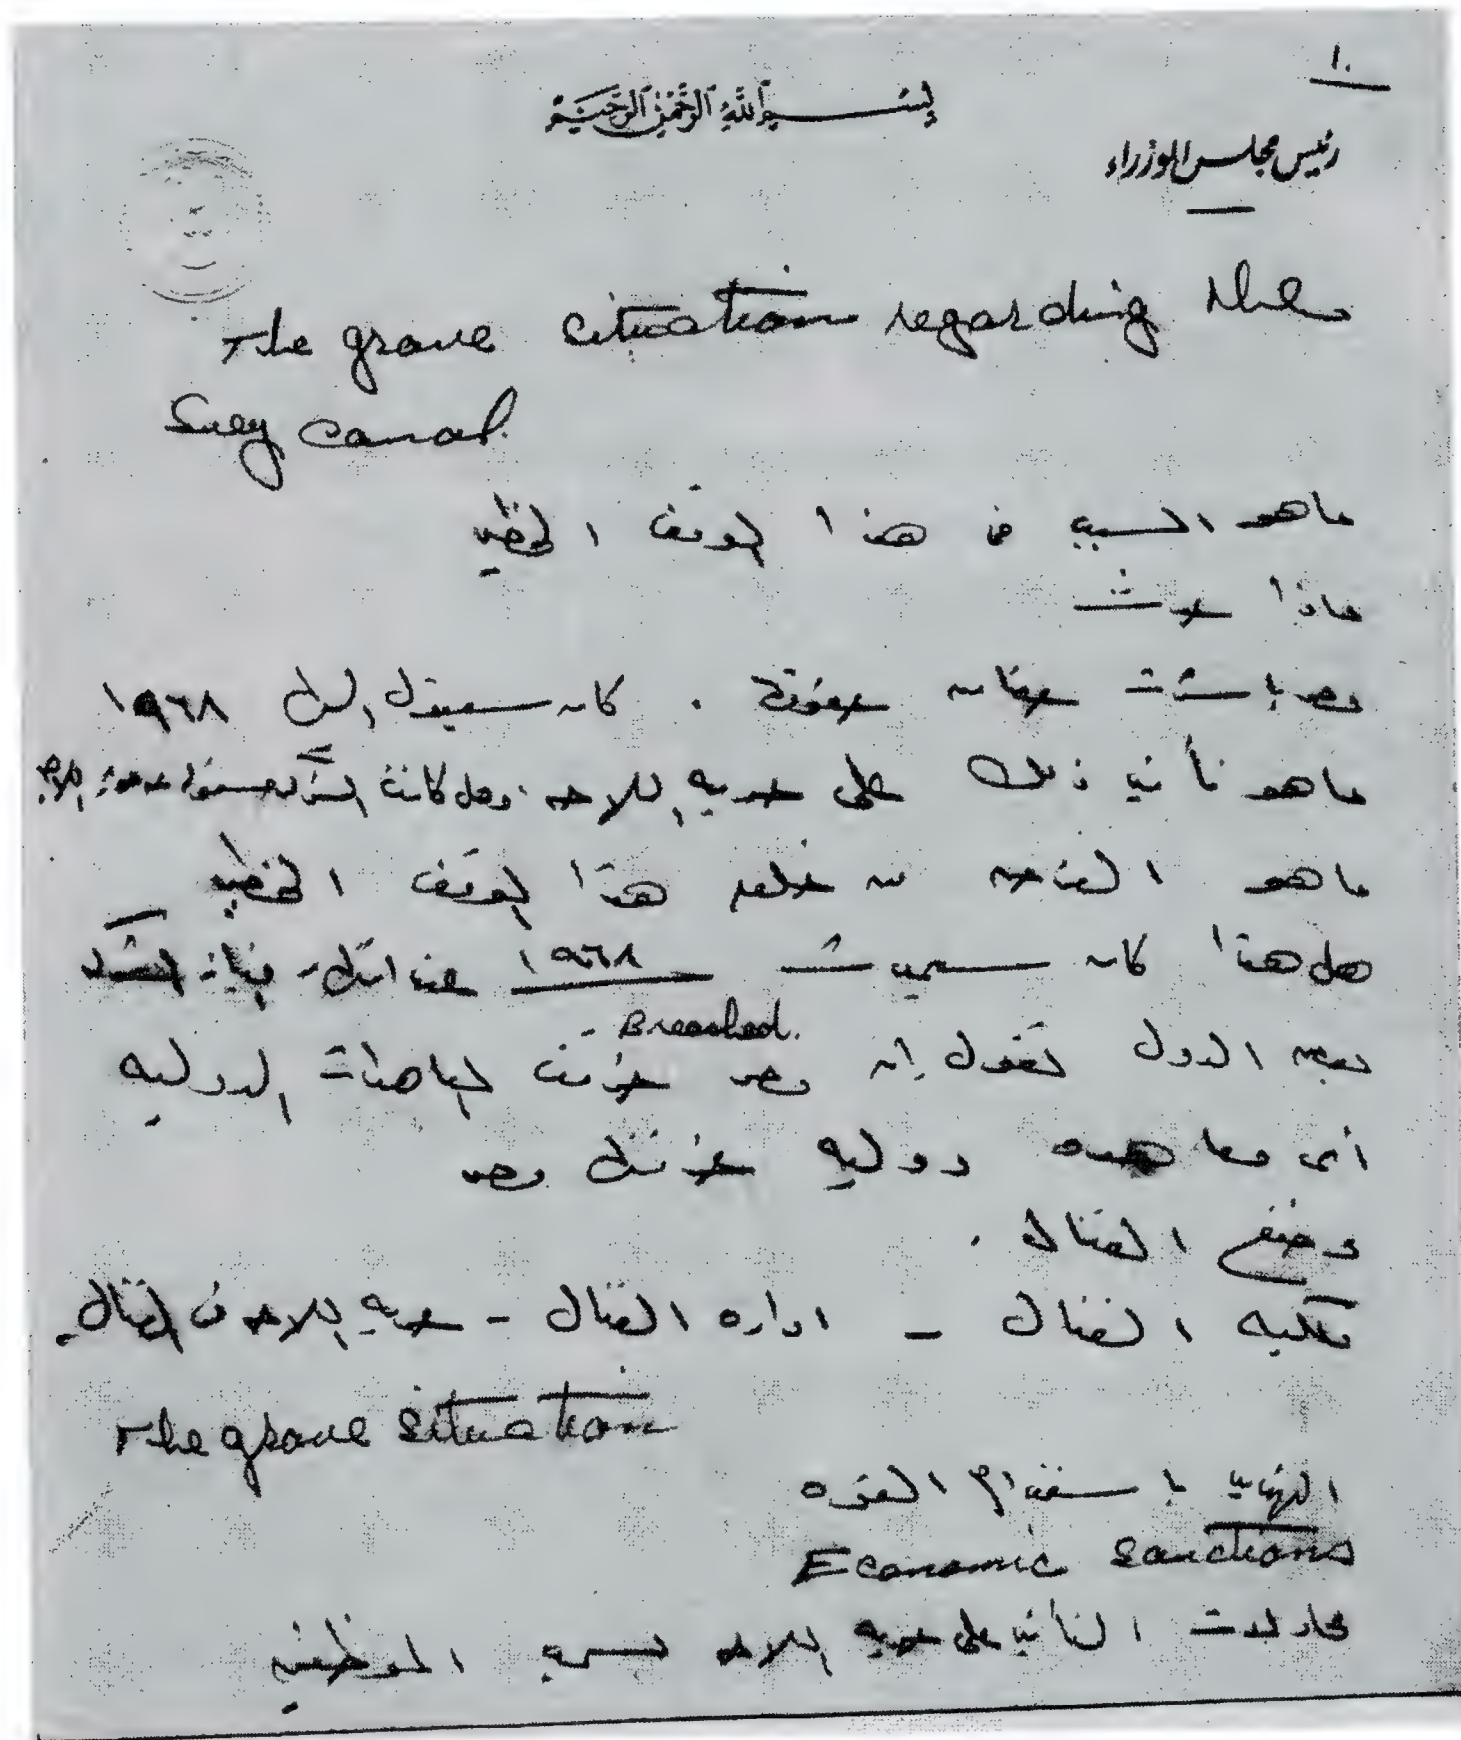 ١٠
بسم الله الرحمن الرحيم
رئيس مجلس الوزراء
The grave situation regarding the
Suez Canal.
ماهو السبب فى هذا الموقف الخطير
ماذا حدث
مصر باشرت حقا من حقوقها . كان سيئول اليها ١٩٦٨
ماهو تأثير ذلك على حرية الملاحه . وهل كانت الشركه مسئوله عن حرية الملاحه
ماهو الغرض من خلق هذا الموقف الخطير
هل هذا كان سيحدث ١٩٦٨ عند انتهاء الشركه
Breached.
بعض الدول تقول إن مصر خرقت المعاهدات الدوليه
أى معاهده دوليه خرقتها مصر
وضع القنال .
ملكيه القنال - اداره القنال - حريه الملاحه فى القنال
The grave situation
التهديد باستخدام القوه
Economic Sanctions
محاولات التأثير على حريه الملاحه بسحب الموظفين